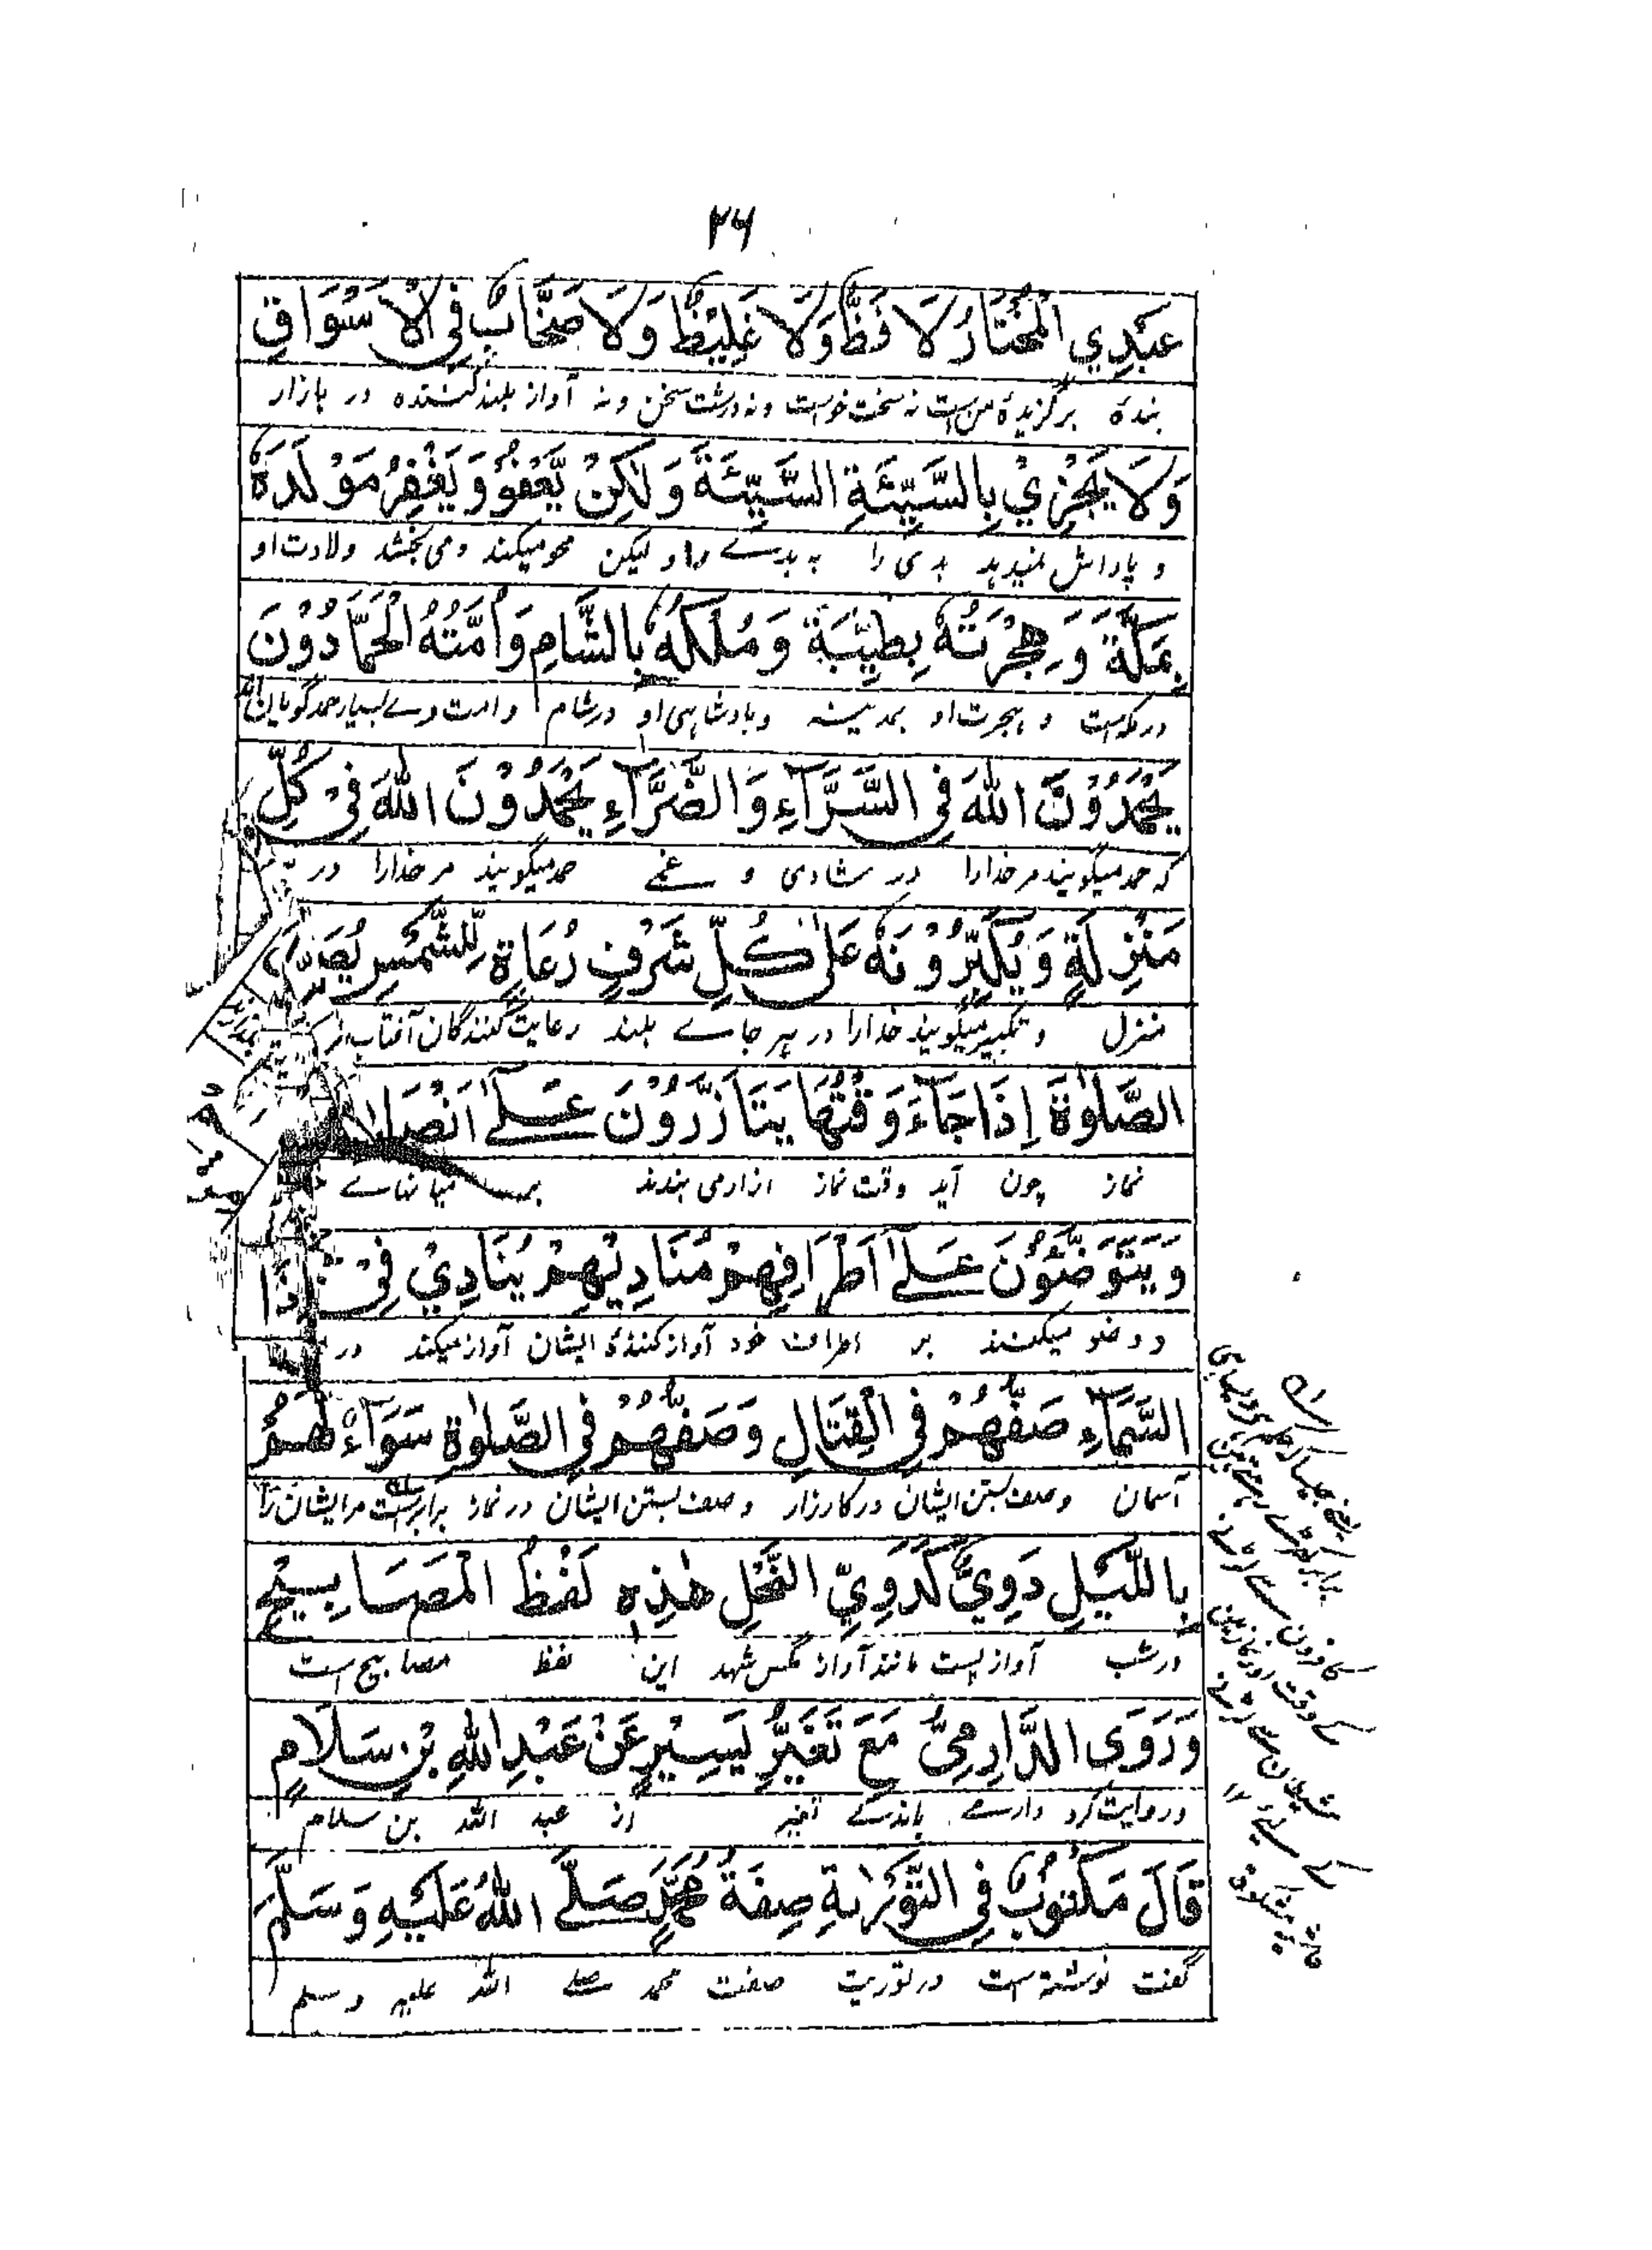 ۲۶
عَبْدِي الْمُخْتَارُ لَا فَظٌّ وَّلَا غَلِيْظٌ وَلَا صَخَّابٌ فِي الْأَسْوَاقِ
بندهٔ برگزیدهٔ من است نه سخت خو است و نه درشت سخن و نه آواز بلند کننده در بازار
وَلَا يَجْزِيْ بِالسَّيِّئَةِ السَّيِّئَةَ وَلٰكِنْ يَّعْفُوْ وَيَغْفِرُ مَوْلَدُهٗ
و پاداش نمیدهد بدی را به بدے را و لیکن محو میکند و می بخشد ولادت او
بِمَكَّةَ وَهِجْرَتُهٗ بِطَيْبَةَ وَمُلْكُهٗ بِالشَّامِ وَأُمَّتُهُ الْحَمَّادُوْنَ
در مکه است و هجرت او بمدینه و بادشاهی او در شام و امت وے بسیار حمد گویان
يَحْمَدُوْنَ اللهَ فِي السَّرَّآءِ وَالضَّرَّآءِ يَحْمَدُوْنَ اللهَ فِيْ كُلِّ
که حمد میگویند مر خدارا در شادی و غمے حمد میگویند مر خدارا در
مَنْزِلَةٍ وَيُكَبِّرُوْنَهٗ عَلٰى كُلِّ شَرَفٍ رُعَاةٌ لِّلشَّمْسِ
منزل و تکبیر میگویند خدارا در هر جاے بلند رعایت کنندگان آفتاب
الصَّلٰوةَ إِذَا جَآءَ وَقْتُهَا يَتَأَزَّرُوْنَ عَلٰٓى
نماز چون آید وقت نماز ازار می بندند بر میانهاے
وَيَتَوَضَّئُوْنَ عَلٰٓى أَطْرَافِهِمْ مُنَادِيْهِمْ يُنَادِيْ فِيْ
و وضو میکنند بر اطراف خود آواز کنندهٔ ایشان آواز میکند در
السَّمَآءِ صَفُّهُمْ فِي الْقِتَالِ وَصَفُّهُمْ فِي الصَّلٰوةِ سَوَآءٌ لَهُمْ
آسمان و صف بستن ایشان در کارزار و صف بستن ایشان در نماز برابر است مر ایشان را
بِاللَّيْلِ دَوِيٌّ كَدَوِيِّ النَّحْلِ هٰذِهِ لَفْظُ الْمَصَابِيْحِ
در شب آوازیست مانند آواز مگس شهد این لفظ مصابیح است
وَرَوَى الدَّارِمِيُّ مَعَ تَغَيُّرٍ يَسِيْرٍ عَنْ عَبْدِ اللهِ بْنِ سَلَامٍ
و روایت کرد دارمے باندکے تغیر از عبد الله بن سلام
قَالَ مَكْتُوْبٌ فِي التَّوْرٰىةِ صِفَةُ مُحَمَّدٍ صَلَّى اللهُ عَلَيْهِ وَسَلَّمَ
گفت نوشته است در توریت صفت محمد صلے الله علیه وسلم